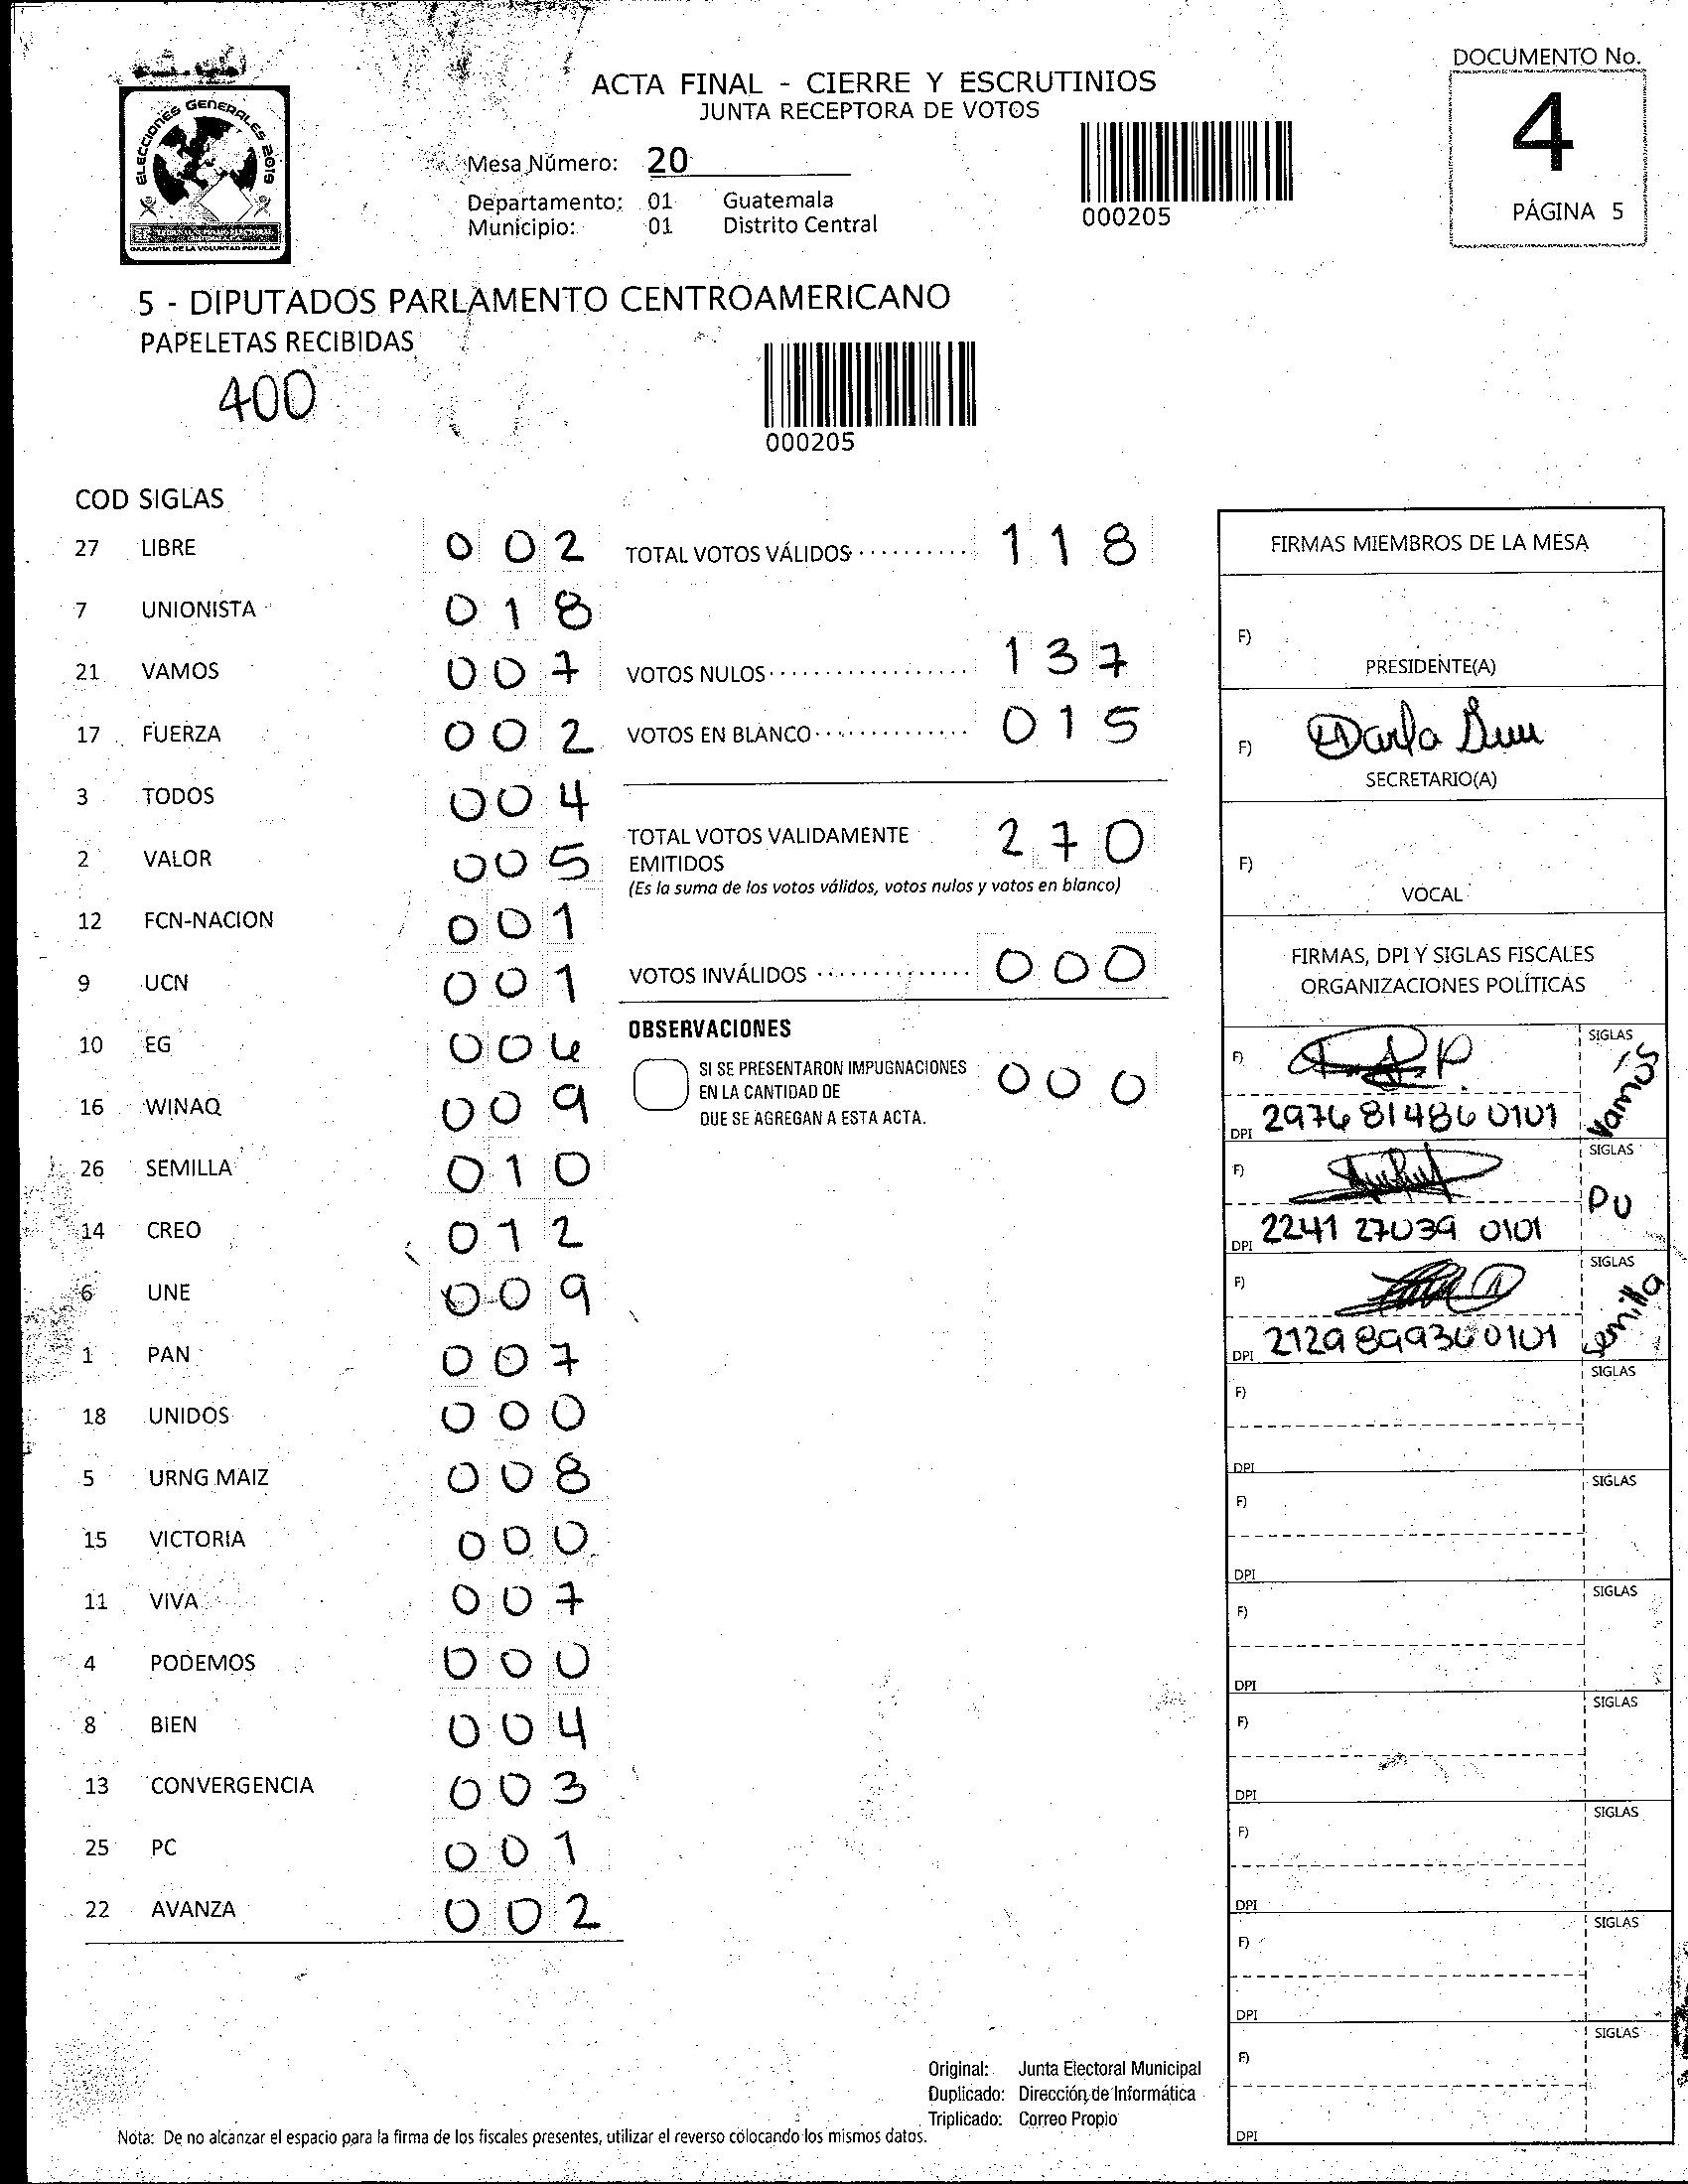 ACTA FINAL - CIERRE Y ESCRUTINIOS
JUNTA RECEPTORA DE VOTOS
DOCUMENTO No.
4
PÁGINA 5
ELECCIONES GENERALES 2019
GARANTIA DE LA VOLUNTAD POPULAR
Mesa Número: 20
Departamento: 01 Guatemala
Municipio: 01 Distrito Central
000205
5 - DIPUTADOS PARLAMENTO CENTROAMERICANO
PAPELETAS RECIBIDAS
400
000205
COD SIGLAS
27 LIBRE 002
7 UNIONISTA 018
21 VAMOS 007
17 FUERZA 002
3 TODOS 004
2 VALOR 005
12 FCN-NACION 001
9 UCN 001
10 EG 006
16 WINAQ 009
26 SEMILLA 010
14 CREO 012
6 UNE 009
1 PAN 007
18 UNIDOS 000
5 URNG MAIZ 008
15 VICTORIA 000
11 VIVA 007
4 PODEMOS 000
8 BIEN 004
13 CONVERGENCIA 003
25 PC 001
22 AVANZA 002
TOTAL VOTOS VÁLIDOS 118
VOTOS NULOS 137
VOTOS EN BLANCO 015
TOTAL VOTOS VALIDAMENTE
EMITIDOS 270
(Es la suma de los votos válidos, votos nulos y votos en blanco)
VOTOS INVÁLIDOS 000
OBSERVACIONES
SI SE PRESENTARON IMPUGNACIONES
EN LA CANTIDAD DE 000
QUE SE AGREGAN A ESTA ACTA.
FIRMAS MIEMBROS DE LA MESA
F)
PRESIDENTE(A)
F) Darla
SECRETARIO(A)
F)
VOCAL
FIRMAS, DPI Y SIGLAS FISCALES
ORGANIZACIONES POLÍTICAS
F) SIGLAS
Vamos
DPI 2976 81486 0101
F) SIGLAS
PU
DPI 2241 27039 0101
F) SIGLAS
Semilla
DPI 2129 89936 0101
F) SIGLAS
DPI
F) SIGLAS
DPI
F) SIGLAS
DPI
F) SIGLAS
DPI
F) SIGLAS
DPI
F) SIGLAS
DPI
F) SIGLAS
DPI
Original: Junta Electoral Municipal
Duplicado: Dirección de Informática
Triplicado: Correo Propio
Nota: De no alcanzar el espacio para la firma de los fiscales presentes, utilizar el reverso colocando los mismos datos.